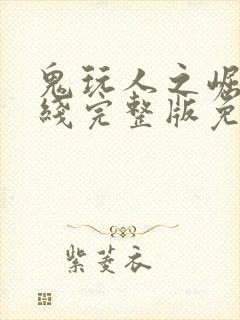 鬼玩人之崛
线完整版免
紫菱衣